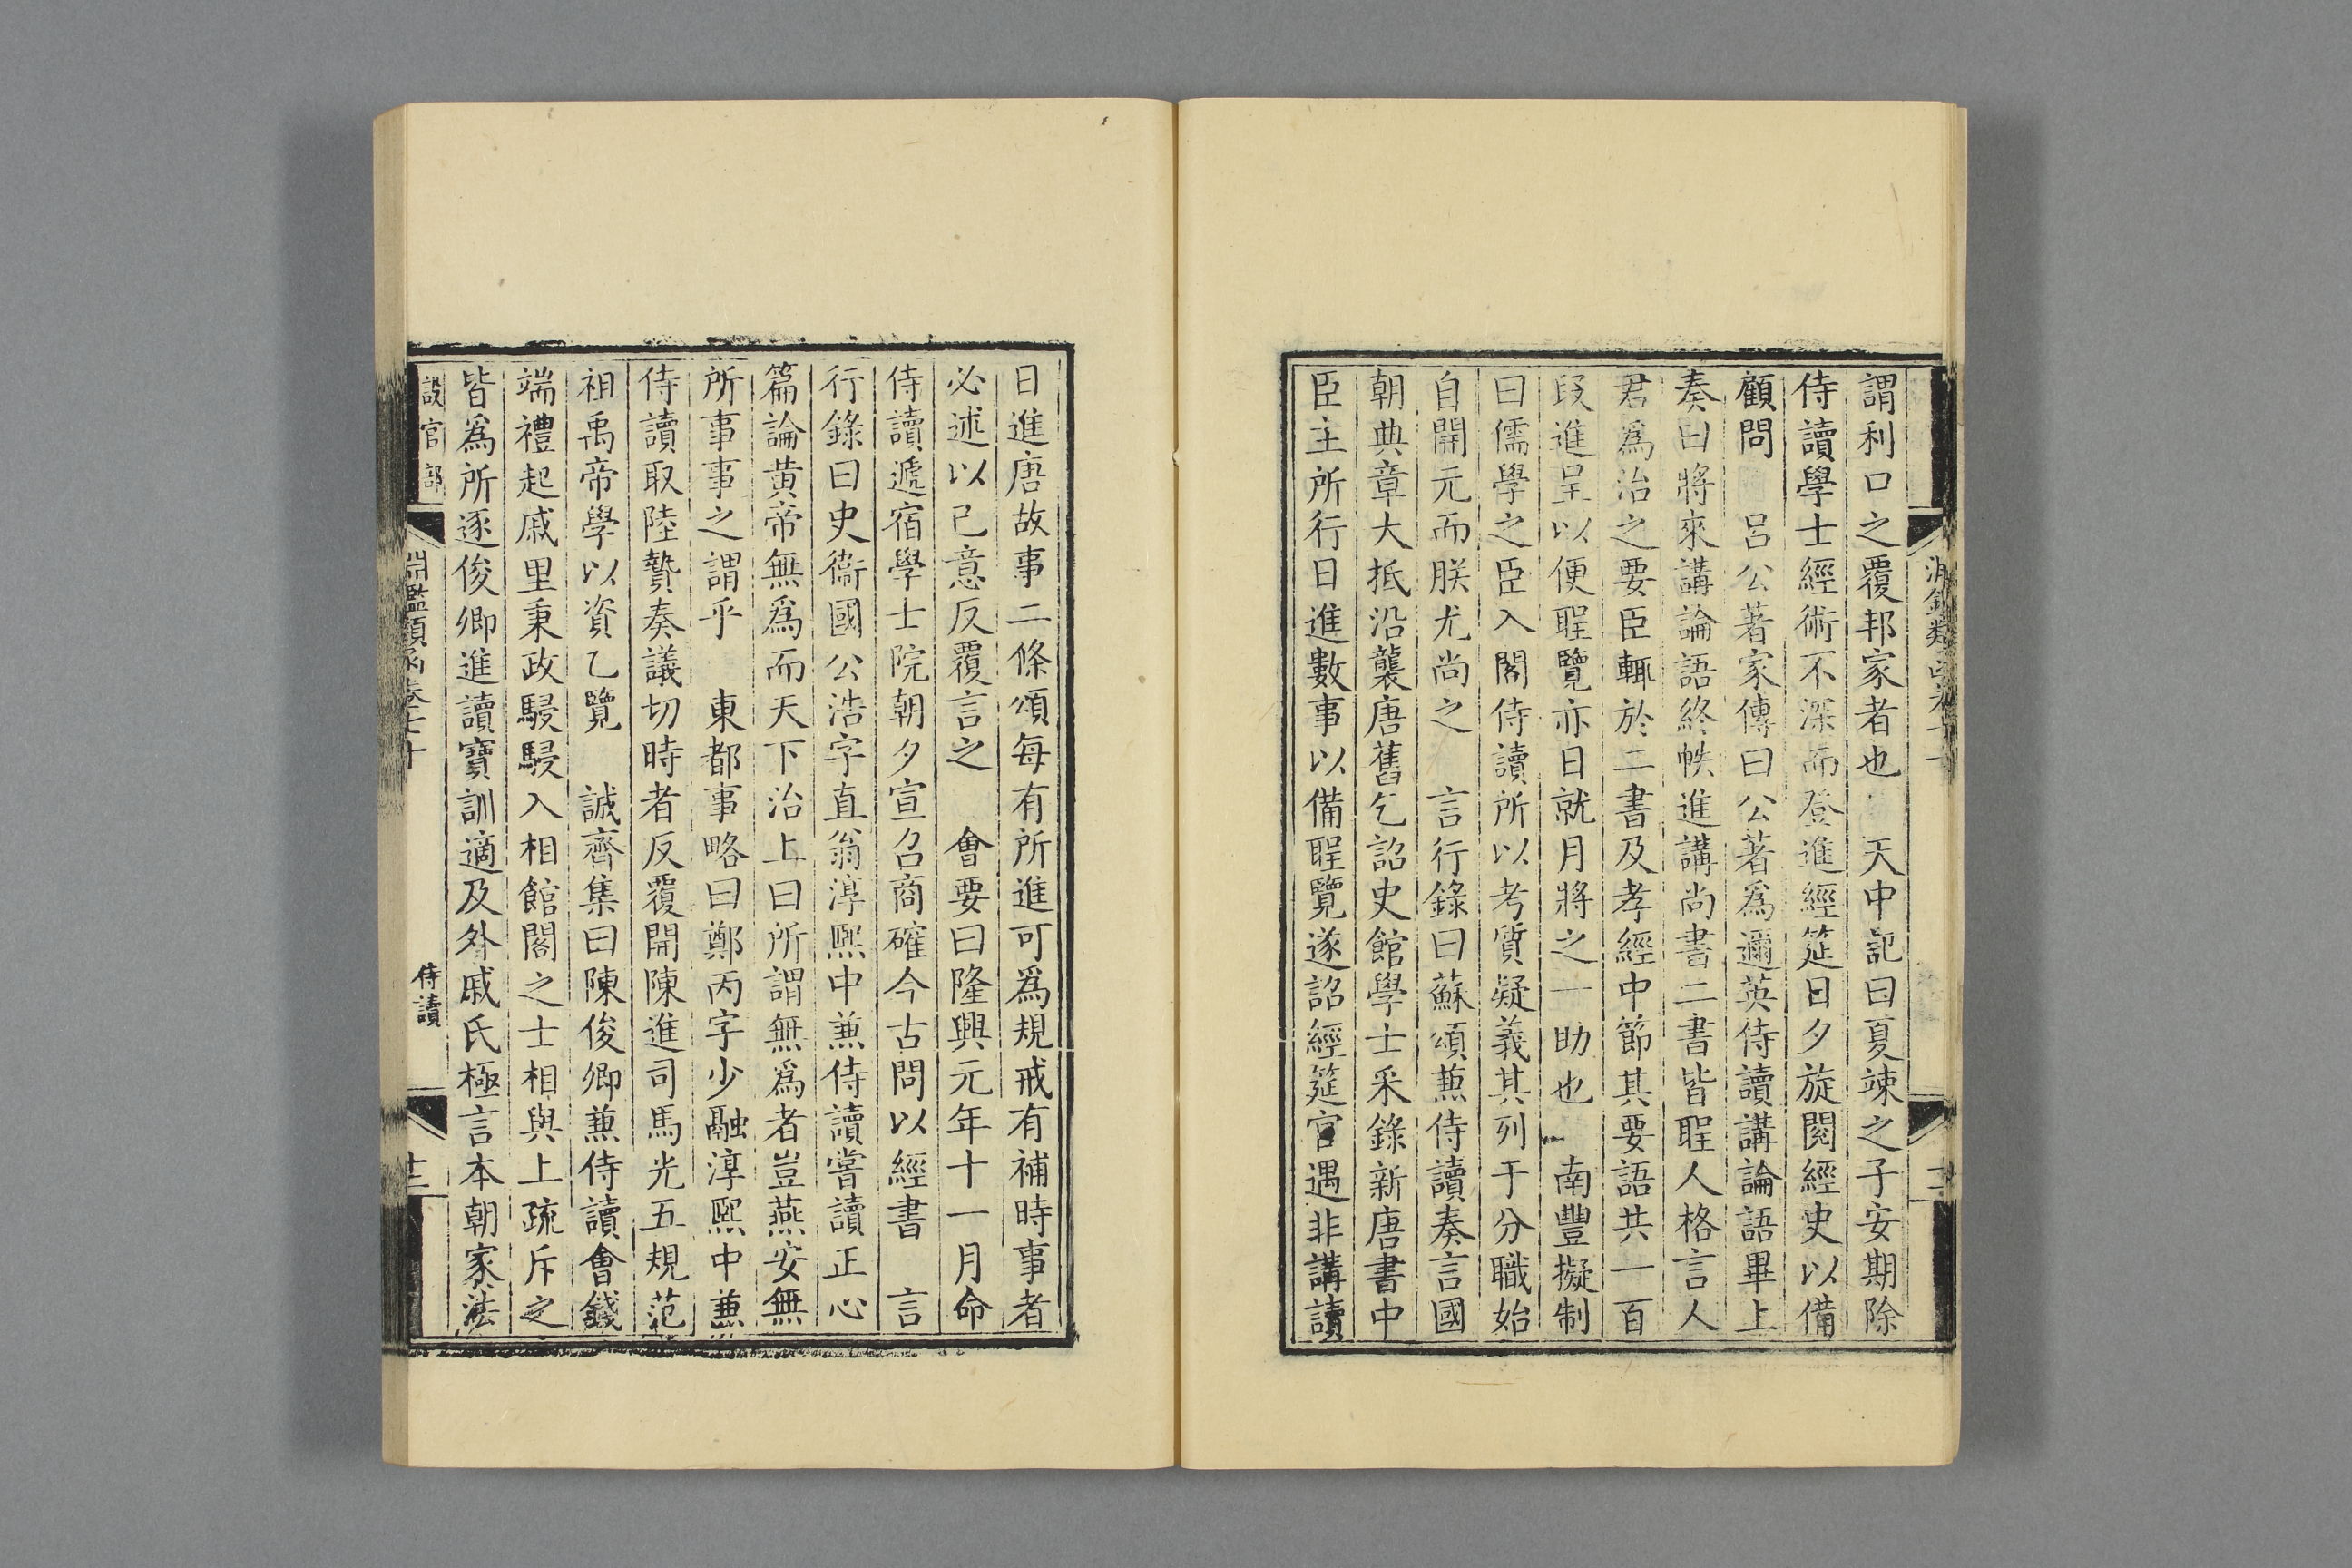 謂利口之覆邦家者也　天中記曰夏竦之子安期除
侍讀學士經術不深而登進經筵日夕旋閱經史以備
顧問　呂公著家傳曰公著爲邇英侍讀講論語畢上
奏曰將來講論語終帙進講尚書二書皆聖人格言人
君爲治之要臣輒於二書及孝經中節其要語共一百
段進呈以便聖覽亦日就月將之一助也　南豐擬制
曰儒學之臣入閣侍讀所以考質疑義其列于分職始
自開元而朕尤尚之　言行錄曰蘇頌兼侍讀奏言國
朝典章大抵沿襲唐舊乞詔史館學士采錄新唐書中
臣主所行日進數事以備聖覽遂詔經筵官遇非講讀
日進唐故事二條頌每有所進可爲規戒有補時事者
必述以己意反覆言之　會要曰隆興元年十一月命
侍讀遞宿學士院朝夕宣召商確今古問以經書　言
行錄曰史衞國公浩字直翁淳熙中兼侍讀嘗讀正心
篇論黃帝無爲而天下治上曰所謂無爲者豈燕安無
所事事之謂乎　東都事略曰鄭丙字少融淳熙中兼
侍讀取陸贄奏議切時者反覆開陳進司馬光五規范
祖禹帝學以資乙覽　誠齊集曰陳俊卿兼侍讀會錢
端禮起戚里秉政駸駸入相館閣之士相與上疏斥之
皆爲所逐俊卿進讀寶訓適及外戚氏極言本朝家法
設官部
淵鑑類函卷七十
侍讀